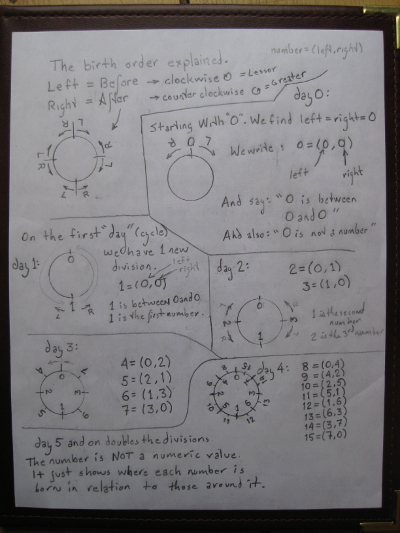 number=(left,right)
The birth order explained.
Left = Before → clockwise = Lesser
Right = After → counter clockwise = Greater
day 0:
Starting with "0". We find left=right=0
R 0 L
We write: 0=(0,0)
left right
And say: "0 is between
0 and 0"
And also: "0 is not a number"
R L
L R
R L
L R
On the first "day" (cycle)
day 1:
we have 1 new
division.
left
right
1=(0,0)
1 is between 0 and 0
1 is the first number.
0
1
L R
day 2:
2=(0,1)
3=(1,0)
1 is the second
number
2 is the 3rd number
0
2 3
1
day 3:
4=(0,2)
5=(2,1)
6=(1,3)
7=(3,0)
0
4 7
2 3
5 6
1
day 4:
8=(0,4)
9=(4,2)
10=(2,5)
11=(5,1)
12=(1,6)
13=(6,3)
14=(3,7)
15=(7,0)
day 5 and on doubles the divisions
The number is NOT a numeric value.
It just shows where each number is
born in relation to those around it.